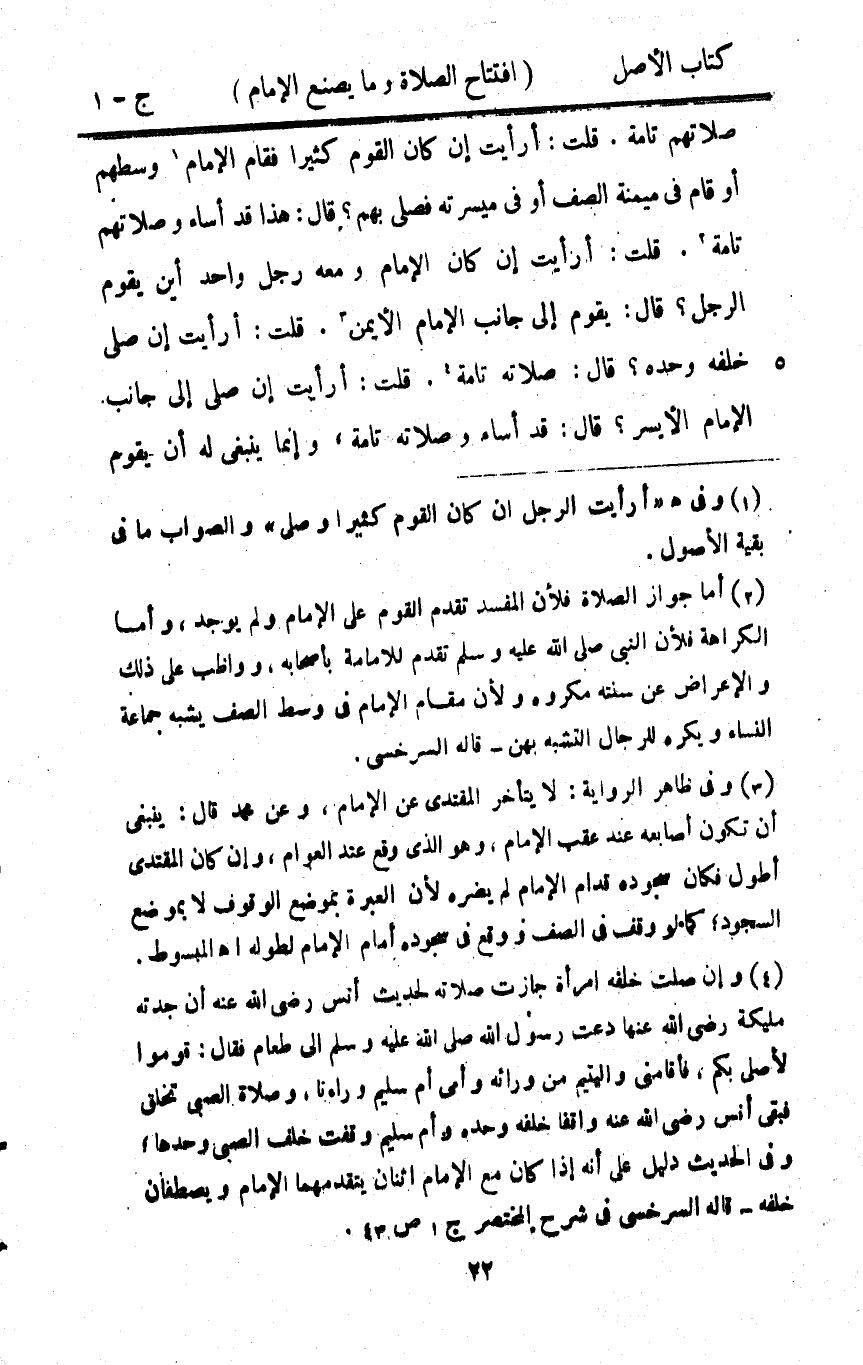 كتاب الأصل ( افتتاح الصلاة و ما يصنع الإمام ) ج - ١
صلاتهم تامة . قلت : أرأيت إن كان القوم كثيرا فقام الإمام ١ وسطهم
أو قام فى ميمنة الصف أو فى ميسرته فصلى بهم ؟ قال : هذا قد أساء و صلاتهم
تامة ٢ . قلت : أرأيت إن كان الإمام و معه رجل واحد أين يقوم
الرجل ؟ قال : يقوم إلى جانب الإمام الأيمن ٣ . قلت : أرأيت إن صلى
٥ خلفه وحده ؟ قال : صلاته تامة ٤ . قلت : أرأيت إن صلى إلى جانب
الإمام الأيسر ؟ قال : قد أساء و صلاته تامة ، و إنما ينبغى له أن يقوم
(١) و فى ه « أرأيت الرجل ان كان القوم كثيرا و صلى » و الصواب ما فى
بقية الأصول .
(٢) أما جواز الصلاة فلأن المفسد تقدم القوم على الإمام ولم يوجد ، و أمـا
الكراهة فلأن النبى صلى الله عليه و سلم تقدم للامامة بأصحابه ، و واظب على ذلك
و الإعراض عن سنته مكروه و لأن مقـام الإمام فى وسط الصف يشبه جماعة
النساء و يكره للرجال التشبه بهن ــ قاله السرخسى .
(٣) و فى ظاهر الرواية : لا يتأخر المقتدى عن الإمام ، و عن محمد قال : ينبغى
أن تكون أصابعه عند عقب الإمام ، و هو الذى وقع عند العوام ، و إن كان المقتدى
أطول فكان سجوده قدام الإمام لم يضره لأن العبرة بموضع الوقوف لا بموضع
السجود ؛ كما لو وقف فى الصف و وقع فى سجوده أمام الإمام لطوله اه المبسوط .
(٤) و إن صلت خلفه امرأة جازت صلاته لحديث أنس رضى الله عنه أن جدته
مليكة رضى الله عنها دعت رسول الله صلى الله عليه و سلم الى طعام فقال : قوموا
لأصلى بكم ، فأقامنى و اليتيم من ورائه و أمى أم سليم وراءنا ، و صلاة الصبى تخلق
فبقى أنس رضى الله عنه واقفا خلفه وحده و أم سليم وقفت خلف الصبى وحدها ؛
و فى الحديث دليل على أنه إذا كان مع الإمام اثنان يتقدمهما الإمام و يصطفان
خلفه ــ قاله السرخسى فى شرح المختصر ج ١ ص ٤٣ .
٢٢